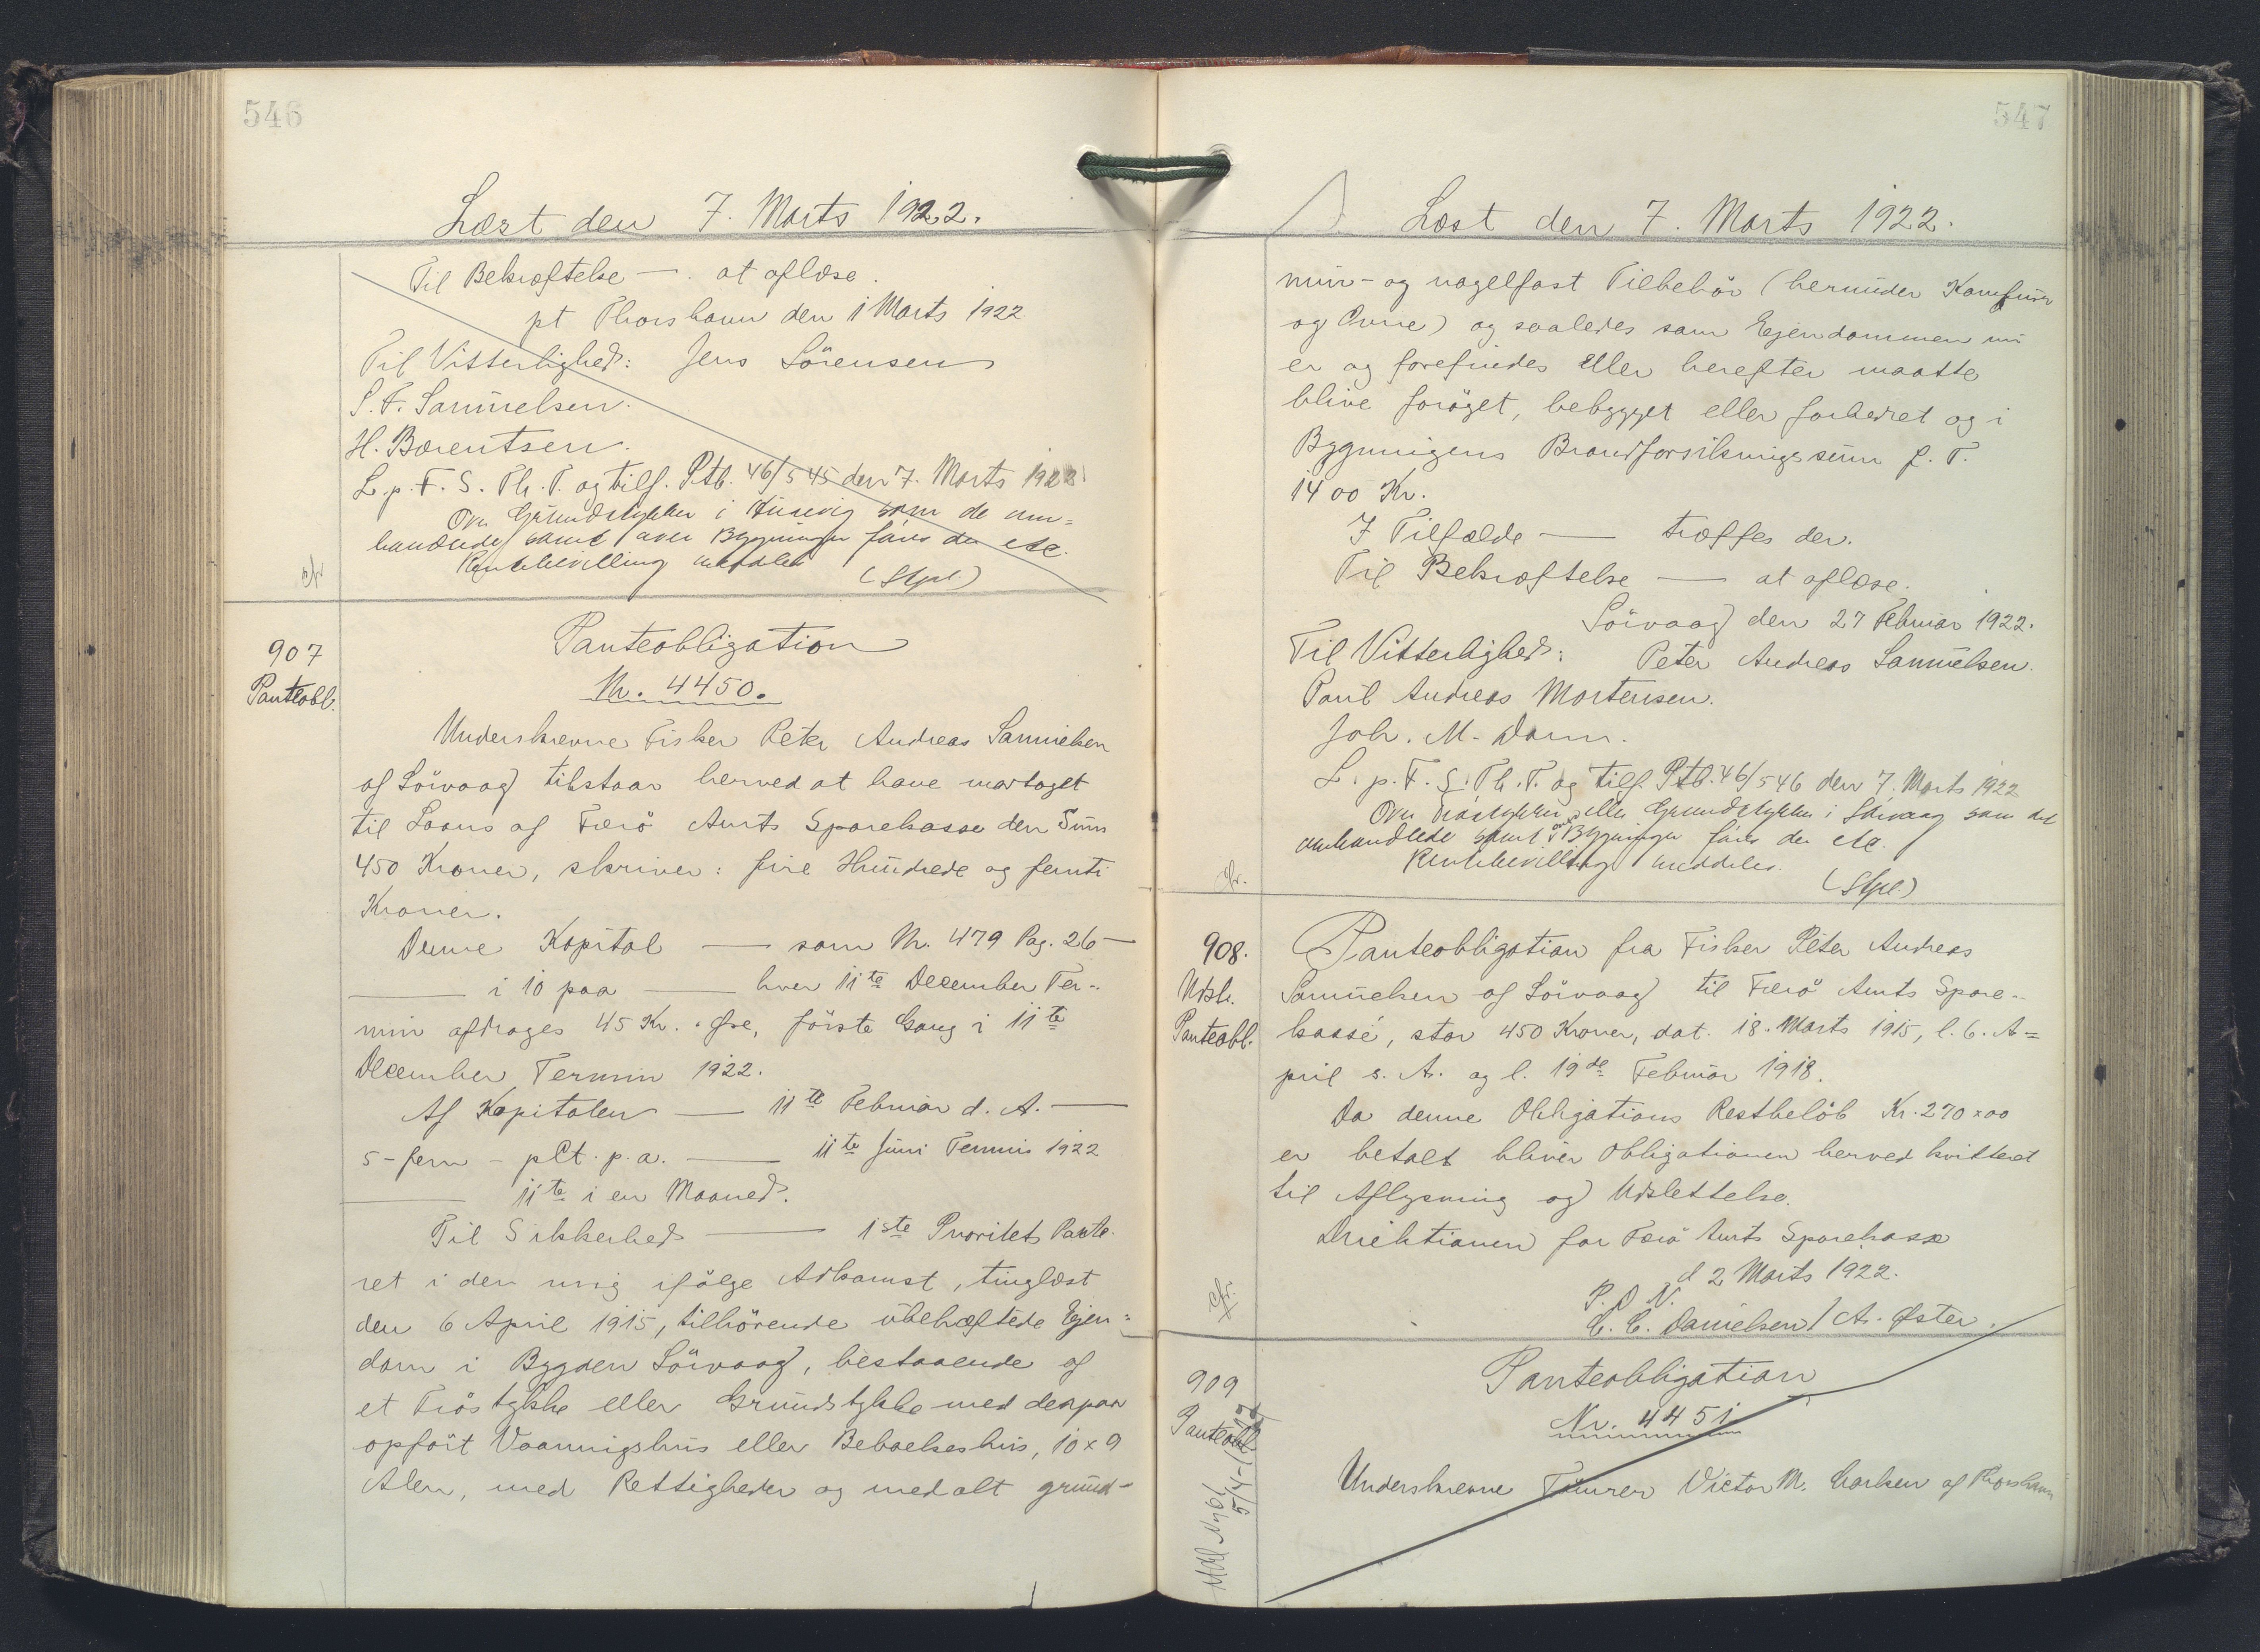 546
Læst den 7. Marts 1922.
Til Bekræftelse — . at aflæse.
pt Thorshavn den 1 Marts 1922
Til Vitterlighed: Jens Sörensen
S. F. Samuelsen.
H. Bærentsen.
L. p. F. S. Th. T. og tilf. Ptb. 46/545 den 7. Marts 1922
Om Grundstykker i som de om=
handlede samt over Bygninger förs der etc.
Rentebevilling meddeles (Stpl.)
907
Panteobl.
Panteobligation
Nr. 4450.
Underskrevne Fisker Peter Andreas Samuelsen
af Sörvaag tilstaar herved at have modtaget
til Laans af Færö Amts Sparekasse den Sum
450 Kroner, skriver: fire Hundrede og femti
Kroner.
Denne Kapital — som Nr. 479 Pag. 26 —
— i 10 paa — hver 11te December Ter-
min afdrages 45 Kr. " Øre, förste Gang i 11te
December Termin 1922.
Af Kapitalen — 11te Februar d. A. —
5 - fem - pCt. p. a. — 11te Juni Termin 1922
— 11te i en Maaned.
Til Sikkerhed — 1ste Prioritets Pante-
ret i den mig ifölge Adkomst, tinglæst
den 6 April 1915, tilhörende ubehæftede Ejen=
dom i Bygden Sörvaag, bestaaende af
et Tröstykke eller Grundstykke med derpaa
opfört Vaaningshus eller Beboelseshus, 10 x 9
Alen, med Rettigheder og med alt grund-
547
Læst den 7. Marts 1922.
mur- og nagelfast Tilbehör (herunder Komfur
og Ovne) og saaledes som Ejendommen nu
er og forefindes eller herefter maatte
blive foröget, bebygget eller forbedret og i
Bygningens Brandforsikringssum p. T.
1400 Kr.
I Tilfælde — træffes der.
Til Bekræftelse — at aflæse.
Sörvaag den 27 Februar 1922.
Til Vitterlighed: Peter Andreas Samuelsen.
Paul Andreas Mortensen.
Joh. M. Dam.
L. p. F. S. Th. T. og tilf. Ptb. 46/546 den 7. Marts 1922
Om Tröstykker eller Grundstykker i Sörvaag som det
omhandlede samt over Bygninger förs der etc.
Rentebevilling meddeles.
(Stpl.)
908.
Udsl.
Panteobl.
Panteobligation fra Fisker Peter Andreas
Samuelsen af Sörvaag til Færö Amts Spare-
kasse, stor 450 Kroner, dat. 18. Marts 1915, l. 6. A=
pril s. A. og l. 19de Februar 1918.
Da denne Obligations Restbelöb Kr. 270 x 00
er betalt bliver Obligationen herved kvitteret
til Aflysning og Udslettelse.
Direktionen for Færö Amts Sparekasse
d 2 Marts 1922.
P. D. V.
C. C. Danielsen / A. Øster.
909
Panteobl.
Panteobligation
Nr. 4451
Underskrevne Tömrer Victor M. Carlsen af Thorshavn